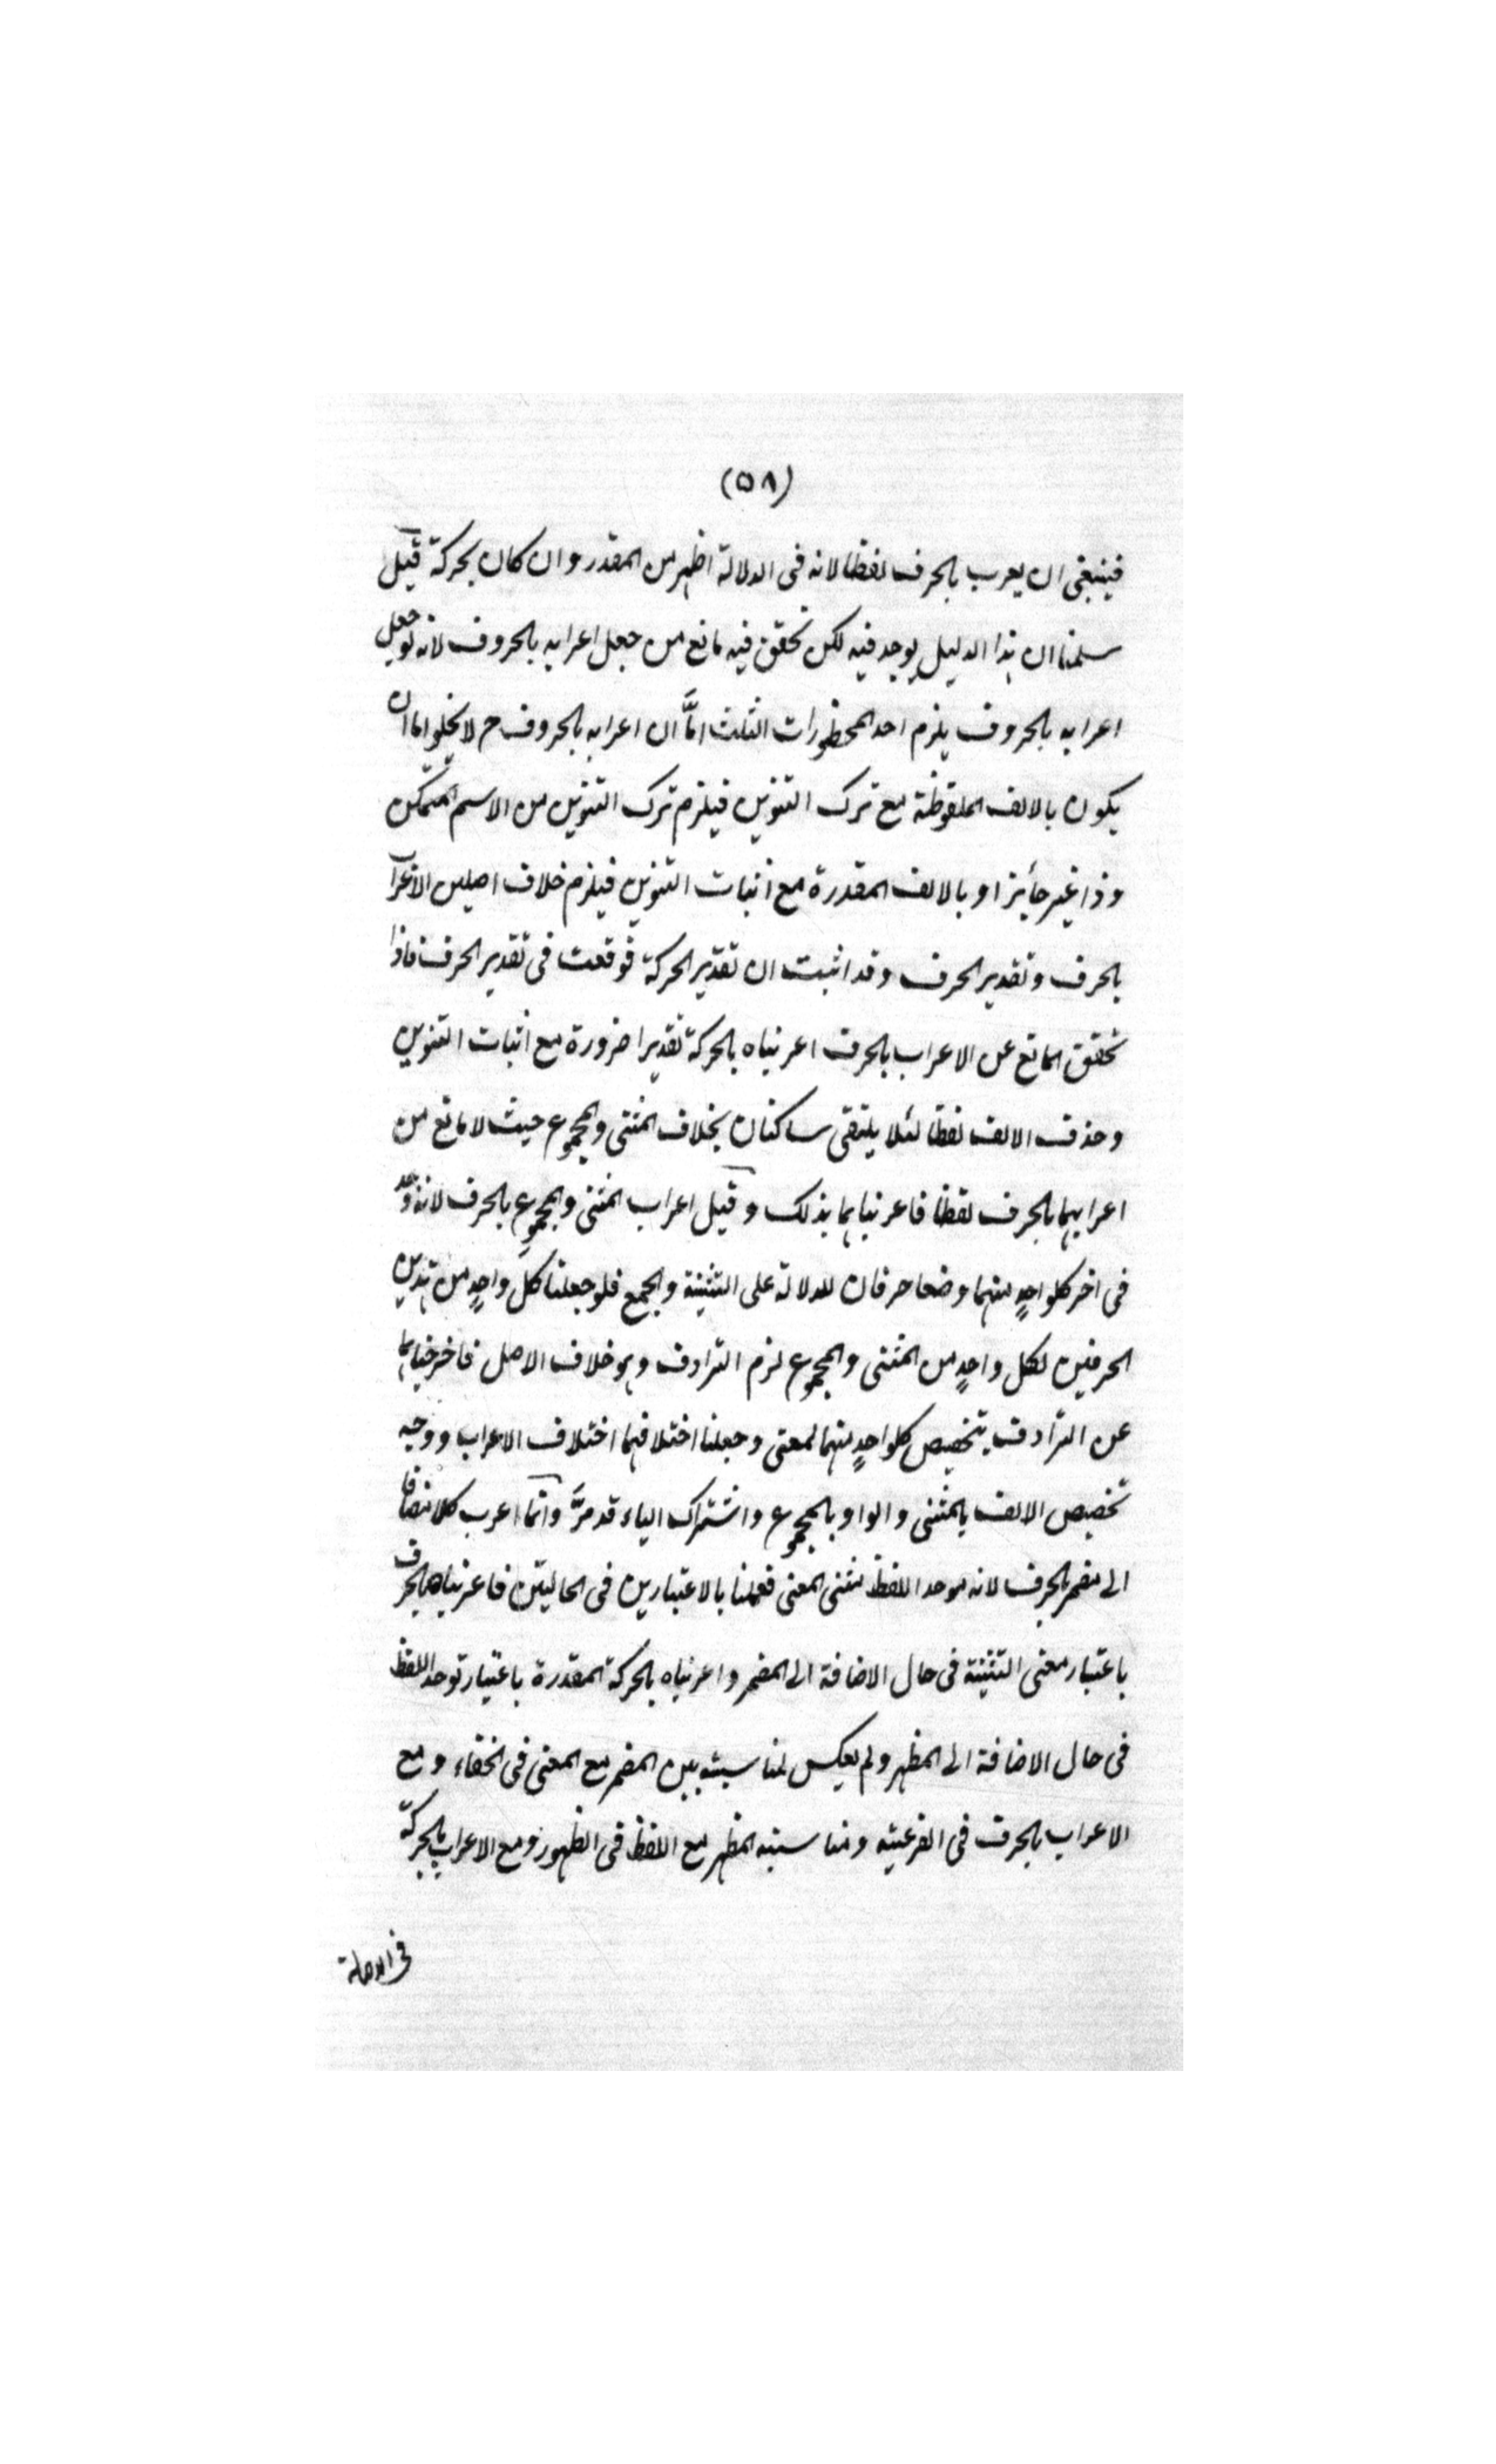 (٥٨)
فينبغى ان يعرب بالحرف لفظا لانه فى الدلالة اظهر من المقدر وان كان بحركة قيل
سلمنا ان هذا الدليل يوجد فيه لكن تحقق فيه مانع من جعل اعرابه بالحروف لانه لو جعل
اعرابه بالحروف يلزم احد المحظورات الثلث امَّا ان اعرابه بالحروف ح لا يخلو اما ان
يكون بالالف الملفوظة مع ترك التنوين فيلزم ترك التنوين من الاسم المتمكن
وذا غير جائز او بالالف المقدرة مع اثبات التنوين فيلزم خلاف اصلين الاعراب
بالحرف وتقدير الحرف وقد اثبت ان تقدير الحركة فوقعت فى تقدير الحرف فاذا
تحقق المانع عن الاعراب بالحرف اعربناه بالحركة تقديرا ضرورة مع اثبات التنوين
وحذف الالف لفظا لئلا يلتقى ساكنان بخلاف المثنى والمجموع حيث لا مانع من
اعرابهما بالحرف لفظا فاعربناهما بذلك وقيل اعراب المثنى والمجموع بالحرف لانه وجد
فى اخر كلواحدٍ منهما وضعا حرفان للدلالة على التثنية والجمع فلو جعلنا كل واحدٍ من هذين
الحرفين لكل واحدٍ من المثنى والمجموع لزم الترادف وهو خلاف الاصل فاخرجناهما
عن الترادف بتخصيص كلواحدٍ منهما لمعنى وجعلنا اختلافهما اختلاف الاعراب ووجه
تخصيص الالف بالمثنى والواو بالمجموع واشتراك الياء قد مرَّ وانما اعرب كلا مضافا
الى مضمر بالحرف لانه موحد اللفظ مثنى المعنى فعملنا بالاعتبارين فى الحالتين فاعربناه بالحرف
باعتبار معنى التثنية فى حال الاضافة الى المضمر واعربناه بالحركة المقدرة باعتبار توحد اللفظ
فى حال الاضافة الى المظهر ولم يعكس لمناسبة بين المضمر مع المعنى فى الخفاء ومع
الاعراب بالحرف فى الفرعية ومناسبته المظهر مع اللفظ فى الظهور ومع الاعراب بالحركة
فى الاصالة